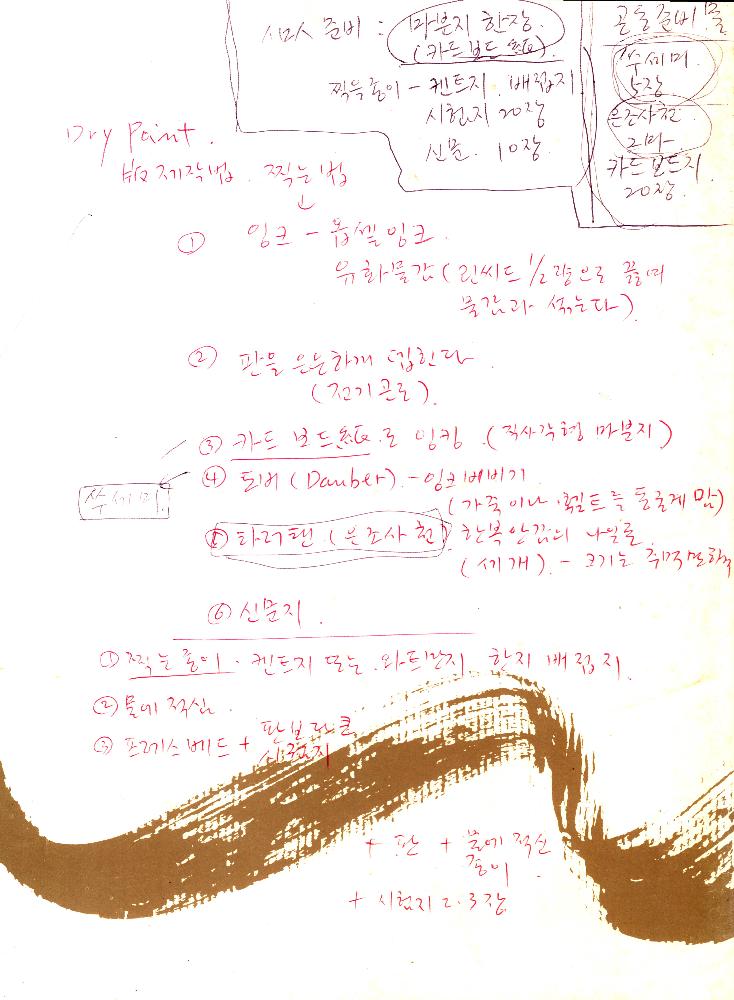 준비 : 마분지 한장.
(카드보드紙).
찍을종이 - 켄트지. 배접지
시험지 20장
신문. 10장.
공동준비물
수세미.
5장
은조사천
2마.
카드보드지
20장.
Dry Paint.
版제작법. 찍는법
↓
① 잉크 - 동셀잉크.
유화물감 (린씨드 1/2량으로 끓여
물감과 섞는다)
② 판을 은은하게 뎁힌다
(전기곤로).
③ 카드 보드紙로 잉킹. (직사각형 마분지)
④ 도버 (Dauber). - 잉크베비기
수세미.
(가죽이나 휄트를 둥글게 맘)
⑤ 타러탠 (은조사천) 한복안감의 나일론
(세개). - 크기는 주먹만하게
⑥ 신문지.
① 찍는종이. 켄트지 또는 와트만지 한지 배접지.
② 물에 적심.
③ 프레스베드 + 판보다큰
시험지
+ 판 + 물에 적신
종이.
+ 시험지 2.3장